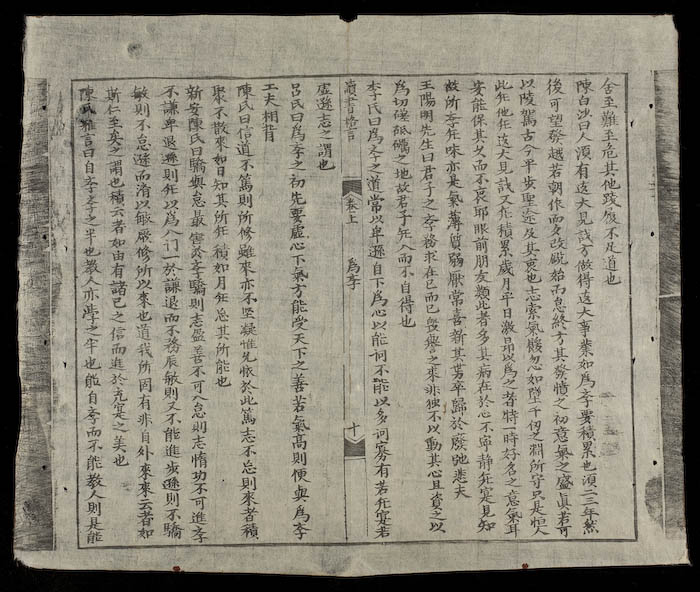 舍至難至危其他踐履不足道也
陳白沙曰人須有遠大見識方做得遠大事業如為斈要積累也須二三年然
後可望發越若朝作而夕改啟始而怠終方其發憤之初意氣之盛真若可
以陵駕古今平步聖途及其衰也志索氣餒忽如墮千仞之淵所守只是恒人
此旡他旡遠大見識又旡積累歲月平日激昻以為之者特一時好名之意氣耳
安能保其久而不衰耶眼前朋友類此者多其病在於心不寧静旡寔見知
故所斈旡味亦是氣薄質弱厭常喜新其卒歸於廢弛悲夫
王陽明先生曰君子之斈務求在已而已毀譽之來非独不以動其心且資之以
為切磋砥礪之地故君子旡入而不自得也
李氏曰為斈之道常以卑遜自下為心以能问不能以多问寡有若旡寔若
讀書格言 卷上 為斈 十
虛遜志之謂也
呂氏曰為斈之初先要虛心下氣方能受天下之善若氣高則便與為斈
工夫相背
陳氏曰信道不篤則所修雖來亦不堅凝惟先懐於此篤志不忘則來者積
聚不散來如日知其所旡積如月旡忘其所能也
新安陳氏曰驕與怠最害於斈驕則志盈善不可入怠則志惰功不可進斈
不謙卑退遜則旡以為入门一於謙退而不務辰敏則又不能進步遜則不驕
敏則不怠遜而濟以敏厥修所以來也道我所固有非自外來來云者如
斯仁至矣之謂也積云者如由有諸已之信而進於充寔之美也
陳氏雅言曰自斈斈之半也教人亦斈之半也能自斈而不能教人則是能